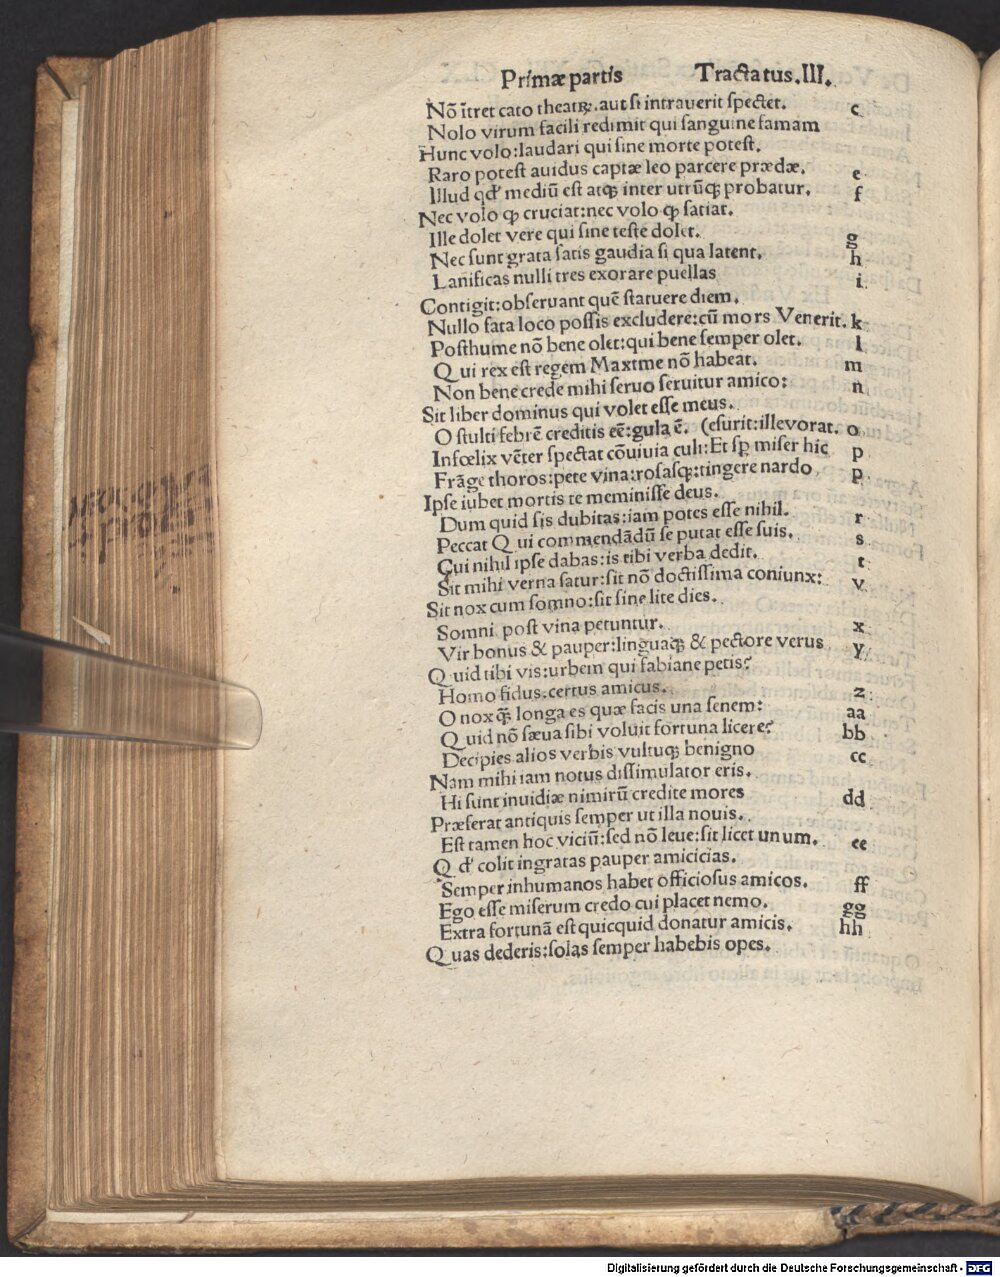 Primæ partis Tractatus.III.
Nō ītret cato theatꝝ.aut si intrauerit spectet. c
Nolo virum facili redimit qui sanguine famam
Hunc volo:laudari qui sine morte potest.
Raro potest auidus captæ leo parcere prædæ. e
Illud qđ mediū est atqꝫ inter utrūqꝫ probatur. f
Nec volo ꝙ cruciat:nec volo ꝙ satiat.
Ille dolet vere qui sine teste dolet. g
Nec sunt grata satis gaudia si qua latent. h
Lanificas nulli tres exorare puellas i
Contigit:obseruant quē statuere diem.
Nullo fata loco possis excludere:cū mors Venerit. k
Posthume nō bene olet:qui bene semper olet. l
Qui rex est regem Maxime nō habeat. m
Non bene crede mihi seruo seruitur amico: n
Sit liber dominus qui volet esse meus.
O stulti febrē creditis eē:gula ē. (esurit:ille vorat. o
Infœlix vēter spectat cōuiuia culi:Et sp̄ miser hic p
Frāge thoros:pete vina:rosasqꝫ:tingere nardo p
Ipse iubet mortis te meminisse deus.
Dum quid sis dubitas:iam potes esse nihil. r
Peccat Qui commendādū se putat esse suis. s
Cui nihil ipse dabas:is tibi verba dedit. t
Sit mihi verna satur:sit nō doctissima coniunx: v
Sit nox cum somno:sit sine lite dies.
Somni post vina petuntur. x
Vir bonus & pauper:linguaqꝫ & pectore verus y
Quid tibi vis:urbem qui fabiane petis?
Homo fidus.certus amicus. z
O nox qꝫ̄ longa es quæ facis una senem: aa
Quid nō sæua sibi voluit fortuna licere? bb
Decipies alios verbis vultuqꝫ benigno cc
Nam mihi iam notus dissimulator eris.
Hi sunt inuidiæ nimirū credite mores dd
Præferat antiquis semper ut illa nouis.
Est tamen hoc viciū:sed nō leue:sit licet unum. ee
Qđ colit ingratas pauper amicicias.
Semper inhumanos habet officiosus amicos. ff
Ego esse miserum credo cui placet nemo. gg
Extra fortunā est quicquid donatur amicis. hh
Quas dederis:solas semper habebis opes.
Digitalisierung gefördert durch die Deutsche Forschungsgemeinschaft - DFG